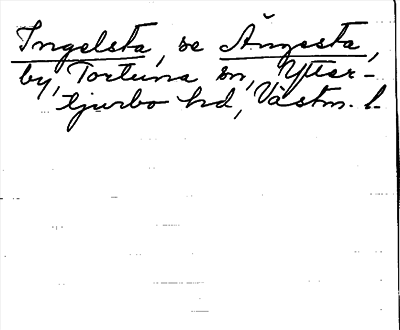 Ingelsta, se Ängesta,
by, Tortuna sn, Ytter-
tjurbo hd, Västm. l.